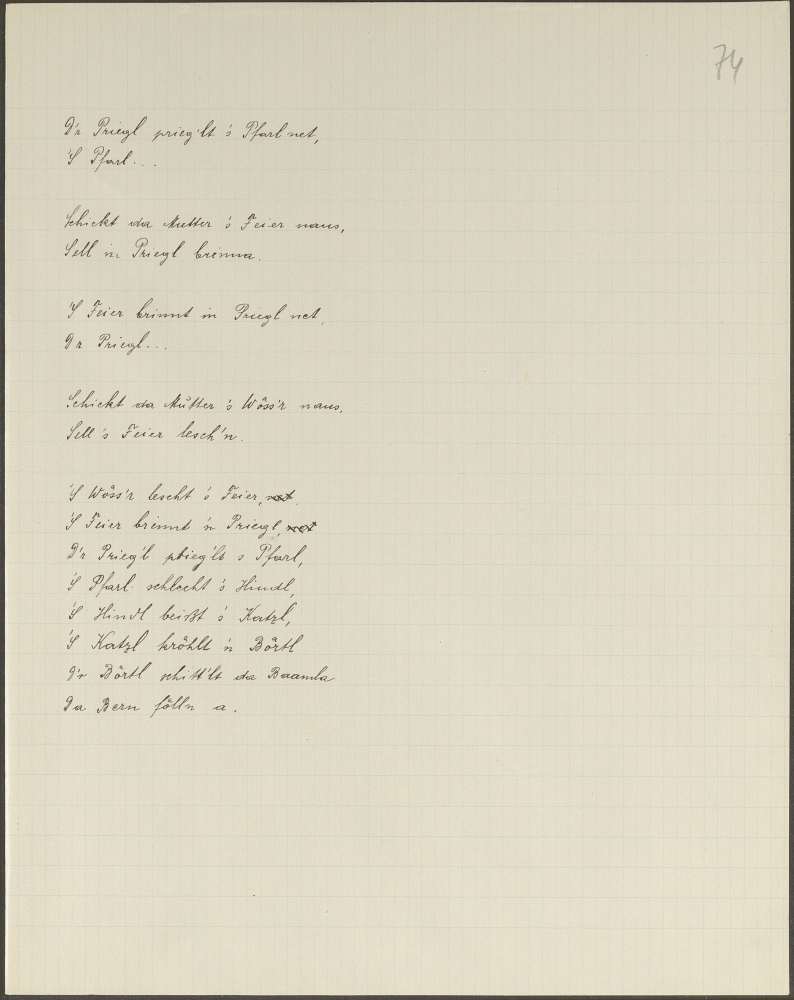 74
D'r Priegl prieg'lt 's Pfarl net,
'S Pfarl...
Schickt da Mutter 's Feier naus,
Sell in Priegl brenna.
'S Feier brinnt in Priegl net,
D'r Priegl...
Schickt da Mutter 's Wöss'r naus,
Sell 's Feier lesch'n.
'S Wöss'r lescht 's Feier, net.
'S Feier brinnt 'n Priegl, net
D'r Prieg'l prieg'lt s Pfarl,
'S Pfarl schlecht 's Hindl,
'S Hindl beißt 's Katzl,
'S Katzl kröhlt 'n Börtl
D'r Börtl schitt'lt da Baamla
Da Bern fölln a.